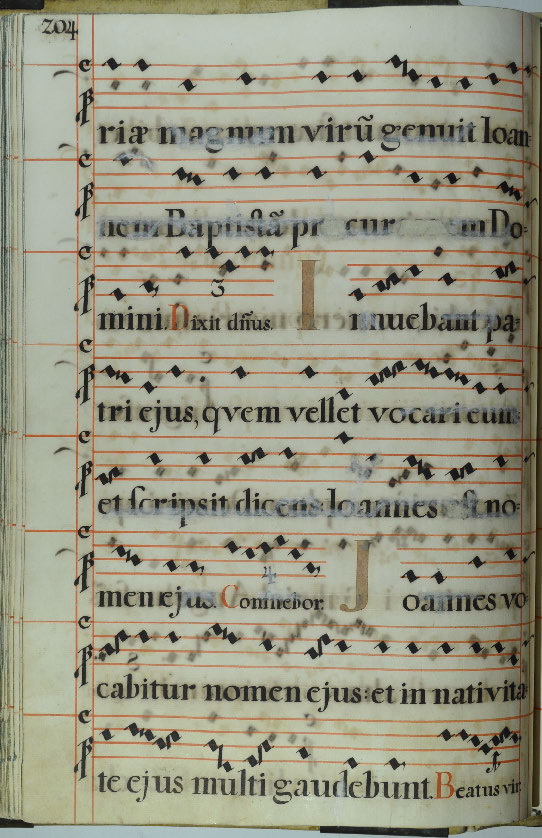 204
riæ magnum virũ genuit Ioan-
nem Baptistã Do=
mini. Dixit dñus. Innuebant pa-
tri ejus, qvem vellet vocari eum:
et scripsit dicens Ioannes est no=
men ejus. Confitebor. Joannes vo-
cabitur nomen ejus: et in nativita-
te ejus multi gaudebunt. Beatus vir.